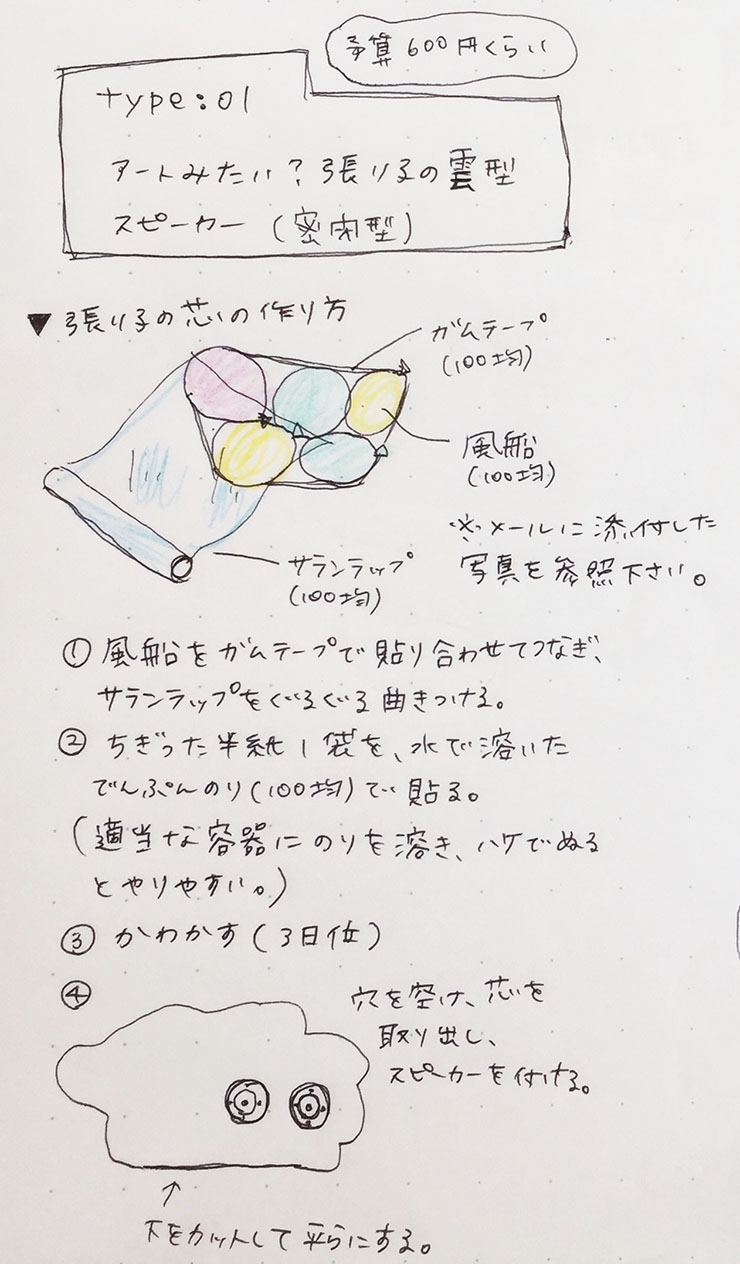 予算600円くらい
type:01
アートみたい?張り子の雲型
スピーカー(密閉型)
▼張り子の芯の作り方
ガムテープ
(100均)
風船
(100均)
※メールに添付した
写真を参照下さい。
サランラップ
(100均)
①風船をガムテープで貼り合わせてつなぎ、
サランラップをぐるぐる曲きつける。
②ちぎった半紙1袋を、水で溶いた
でんぷんのり(100均)で貼る。
(適当な容器にのりを溶き、ハケでぬる
とやりやすい。)
③かわかす(3日位)
④
穴を空け、芯を
取り出し、
スピーカーを付ける。
↑
下をカットして平らにする。